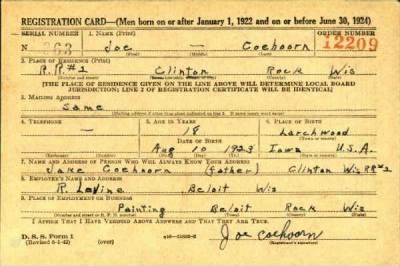 REGISTRATION CARD—(Men born on or after January 1, 1922 and on or before June 30, 1924)
SERIAL NUMBER 1. NAME (Print) ORDER NUMBER
N 363 Joe — Coehoorn 12209
(First) (Middle) (Last)
2. PLACE OF RESIDENCE (Print)
R.R.#1 Clinton Rock Wis
[THE PLACE OF RESIDENCE GIVEN ON THE LINE ABOVE WILL DETERMINE LOCAL BOARD
JURISDICTION; LINE 2 OF REGISTRATION CERTIFICATE WILL BE IDENTICAL]
3. MAILING ADDRESS
Same
4. TELEPHONE 5. AGE IN YEARS 6. PLACE OF BIRTH
— 18 Larchwood
DATE OF BIRTH
Aug 10 1923 Iowa U.S.A.
7. NAME AND ADDRESS OF PERSON WHO WILL ALWAYS KNOW YOUR ADDRESS
Jake Coehoorn (father) Clinton Wis RR#1
8. EMPLOYER'S NAME AND ADDRESS
R. LaVine Beloit Wis
9. PLACE OF EMPLOYMENT OR BUSINESS
Painting Beloit Rock Wis
I AFFIRM THAT I HAVE VERIFIED ABOVE ANSWERS AND THAT THEY ARE TRUE.
D. S. S. Form 1 Joe Coehoorn
(over) (Registrant's signature)